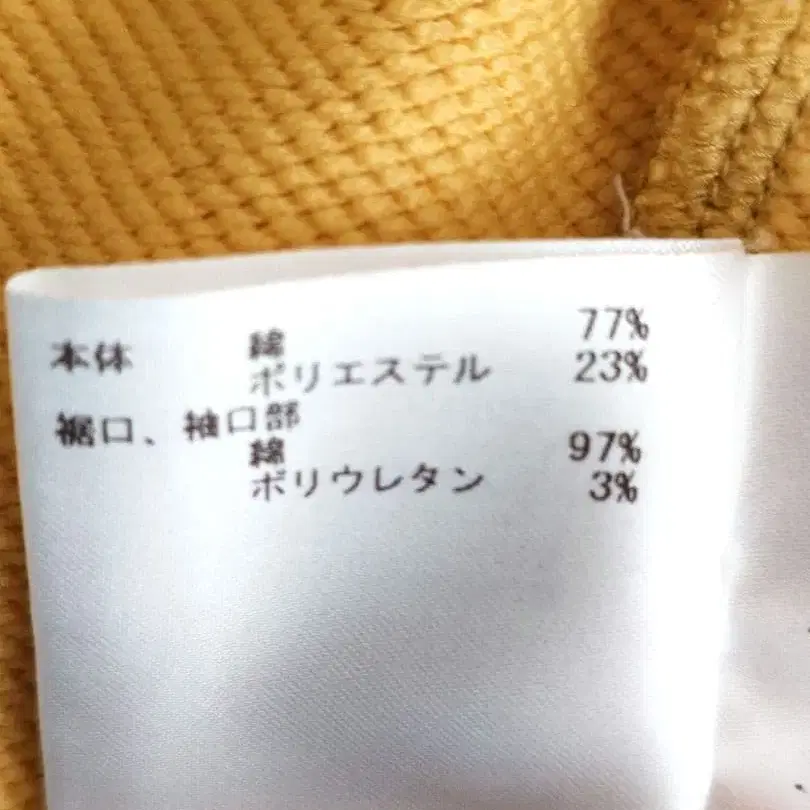 本体 綿 77%
ポリエステル 23%
裾口、袖口部
綿 97%
ポリウレタン 3%